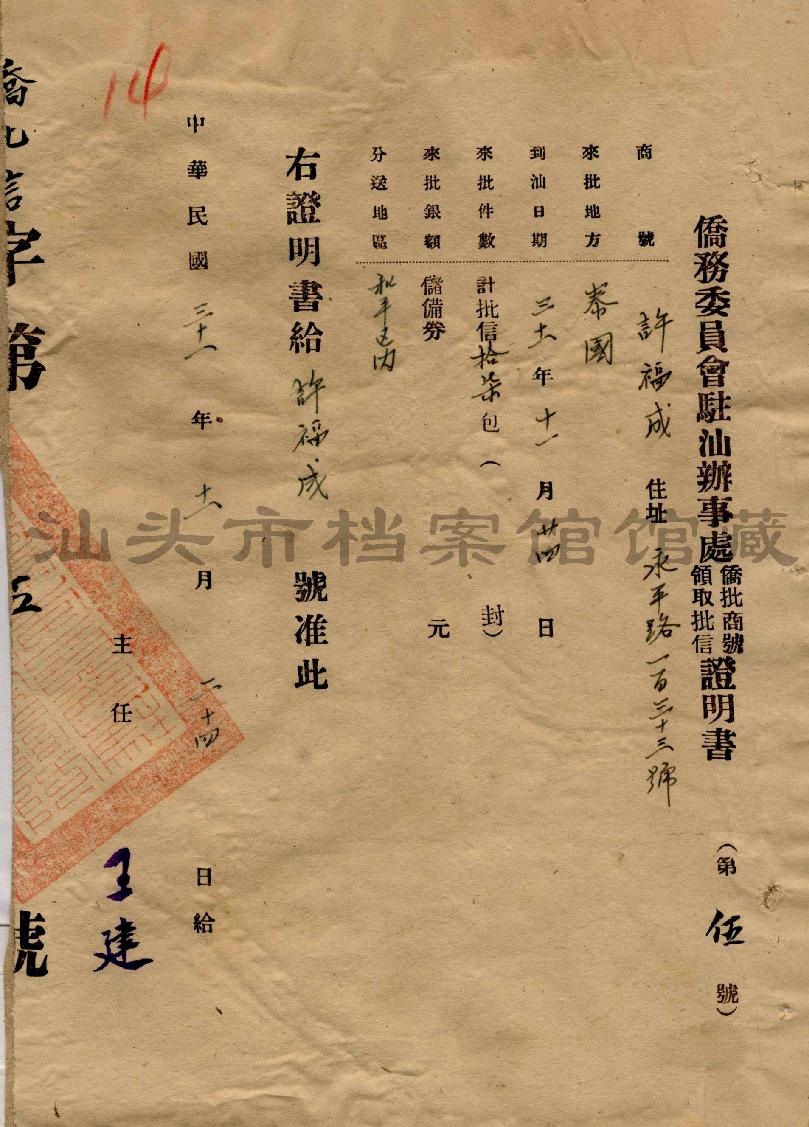 僑務委員會駐汕辦事處僑批商號領取批信證明書（第伍號）
商號 許福成 住址 永平路一百三十三號
來批地方 泰國
到汕日期 三十一年十一月廿四日
來批件數 計批信拾柒包（ 封）
來批銀額 儲備券 元
分送地區 和平區內
右證明書給 許福成 號准此
中華民國 三十一 年 十一 月 二十四 日給
主任 王建
字第 五 號
14
汕头市档案馆馆藏